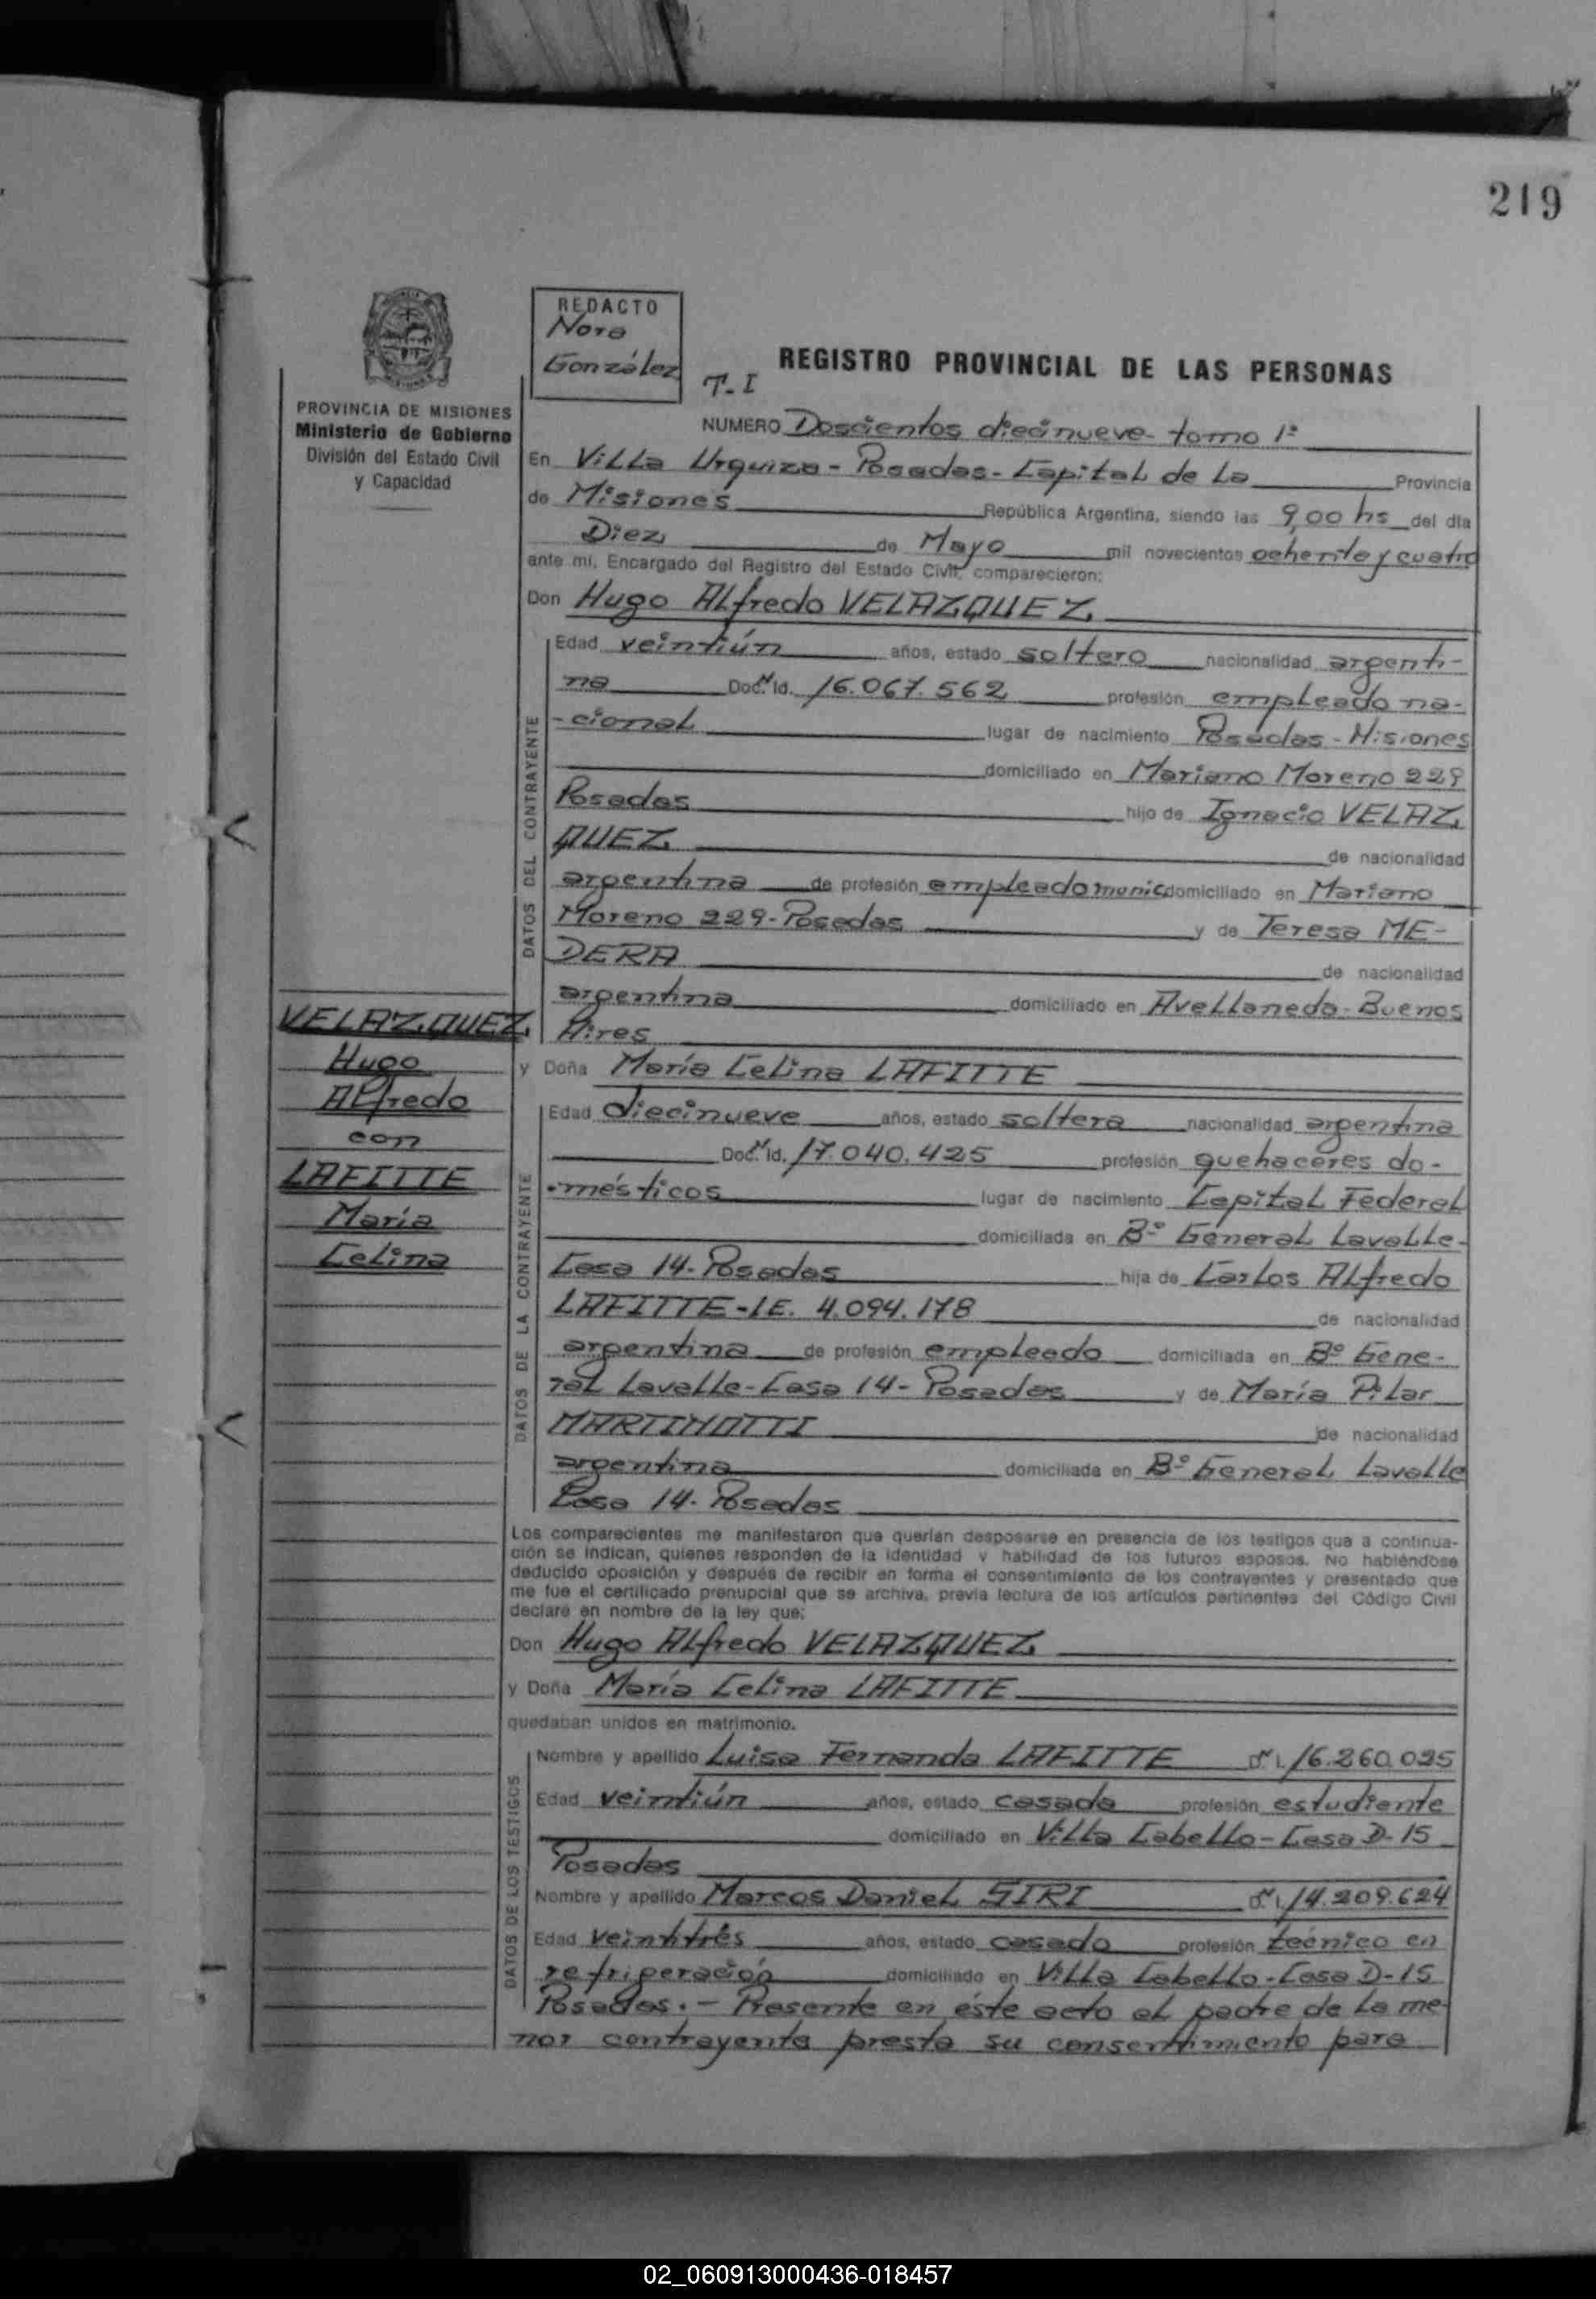 219
REDACTO
Nora
González
T. I
REGISTRO PROVINCIAL DE LAS PERSONAS
PROVINCIA DE MISIONES
Ministerio de Gobierno
División del Estado Civil
y Capacidad
NUMERO Doscientos diecinueve tomo 1º
En Villa Urquiza - Posadas - Capital de La Provincia
de Misiones República Argentina, siendo las 9,00 hs del día
Diez de Mayo mil novecientos ochenta y cuatro
ante mí, Encargado del Registro del Estado Civil, comparecieron:
Don Hugo Alfredo VELAZQUEZ
DATOS DEL CONTRAYENTE
Edad veintiún años, estado soltero nacionalidad argenti-
na Doc. Id. 16.067.562 profesión empleado na-
-cional lugar de nacimiento Posadas - Misiones
domiciliado en Mariano Moreno 229
Posadas hijo de Ignacio VELAZ
QUEZ de nacionalidad
argentina de profesión empleado munic domiciliado en Mariano
Moreno 229-Posadas y de Teresa ME-
DERA de nacionalidad
argentina domiciliado en Avellaneda - Buenos
Aires
VELAZQUEZ
Hugo
Alfredo
con
LAFITTE
María
Celina
y Doña María Celina LAFITTE
DATOS DE LA CONTRAYENTE
Edad diecinueve años, estado soltera nacionalidad argentina
Doc. Id. 17.040.425 profesión quehaceres do-
-mésticos lugar de nacimiento Capital Federal
domiciliada en Bº General Lavalle-
Casa 14- Posadas hija de Carlos Alfredo
LAFITTE-LE. 4.094.178 de nacionalidad
argentina de profesión empleado domiciliada en Bº Gene-
ral Lavalle-Casa 14- Posadas y de María Pilar
MARTINOTTI de nacionalidad
argentina domiciliada en Bº General Lavalle
Casa 14- Posadas
Los comparecientes me manifestaron que querían desposarse en presencia de los testigos que a continua-
ción se indican, quienes responden de la identidad y habilidad de los futuros esposos. No habiéndose
deducido oposición y después de recibir en forma el consentimiento de los contrayentes y presentado que
me fue el certificado prenupcial que se archiva, previa lectura de los artículos pertinentes del Código Civil
declaré en nombre de la ley que:
Don Hugo Alfredo VELAZQUEZ
y Doña María Celina LAFITTE
quedaban unidos en matrimonio.
DATOS DE LOS TESTIGOS
Nombre y apellido Luisa Fernanda LAFITTE 16.260.025
Edad veintiún años, estado casada profesión estudiente
domiciliado en Villa Cabello - Casa D-15
Posadas
Nombre y apellido Marcos Daniel SIRI 14.209.624
Edad veintitrés años, estado casado profesión técnico en
refrigeración domiciliado en Villa Cabello - Casa D-15
Posadas. - Presente en éste acto el padre de La me-
nor contrayente presta su consentimiento para
02_060913000436-018457